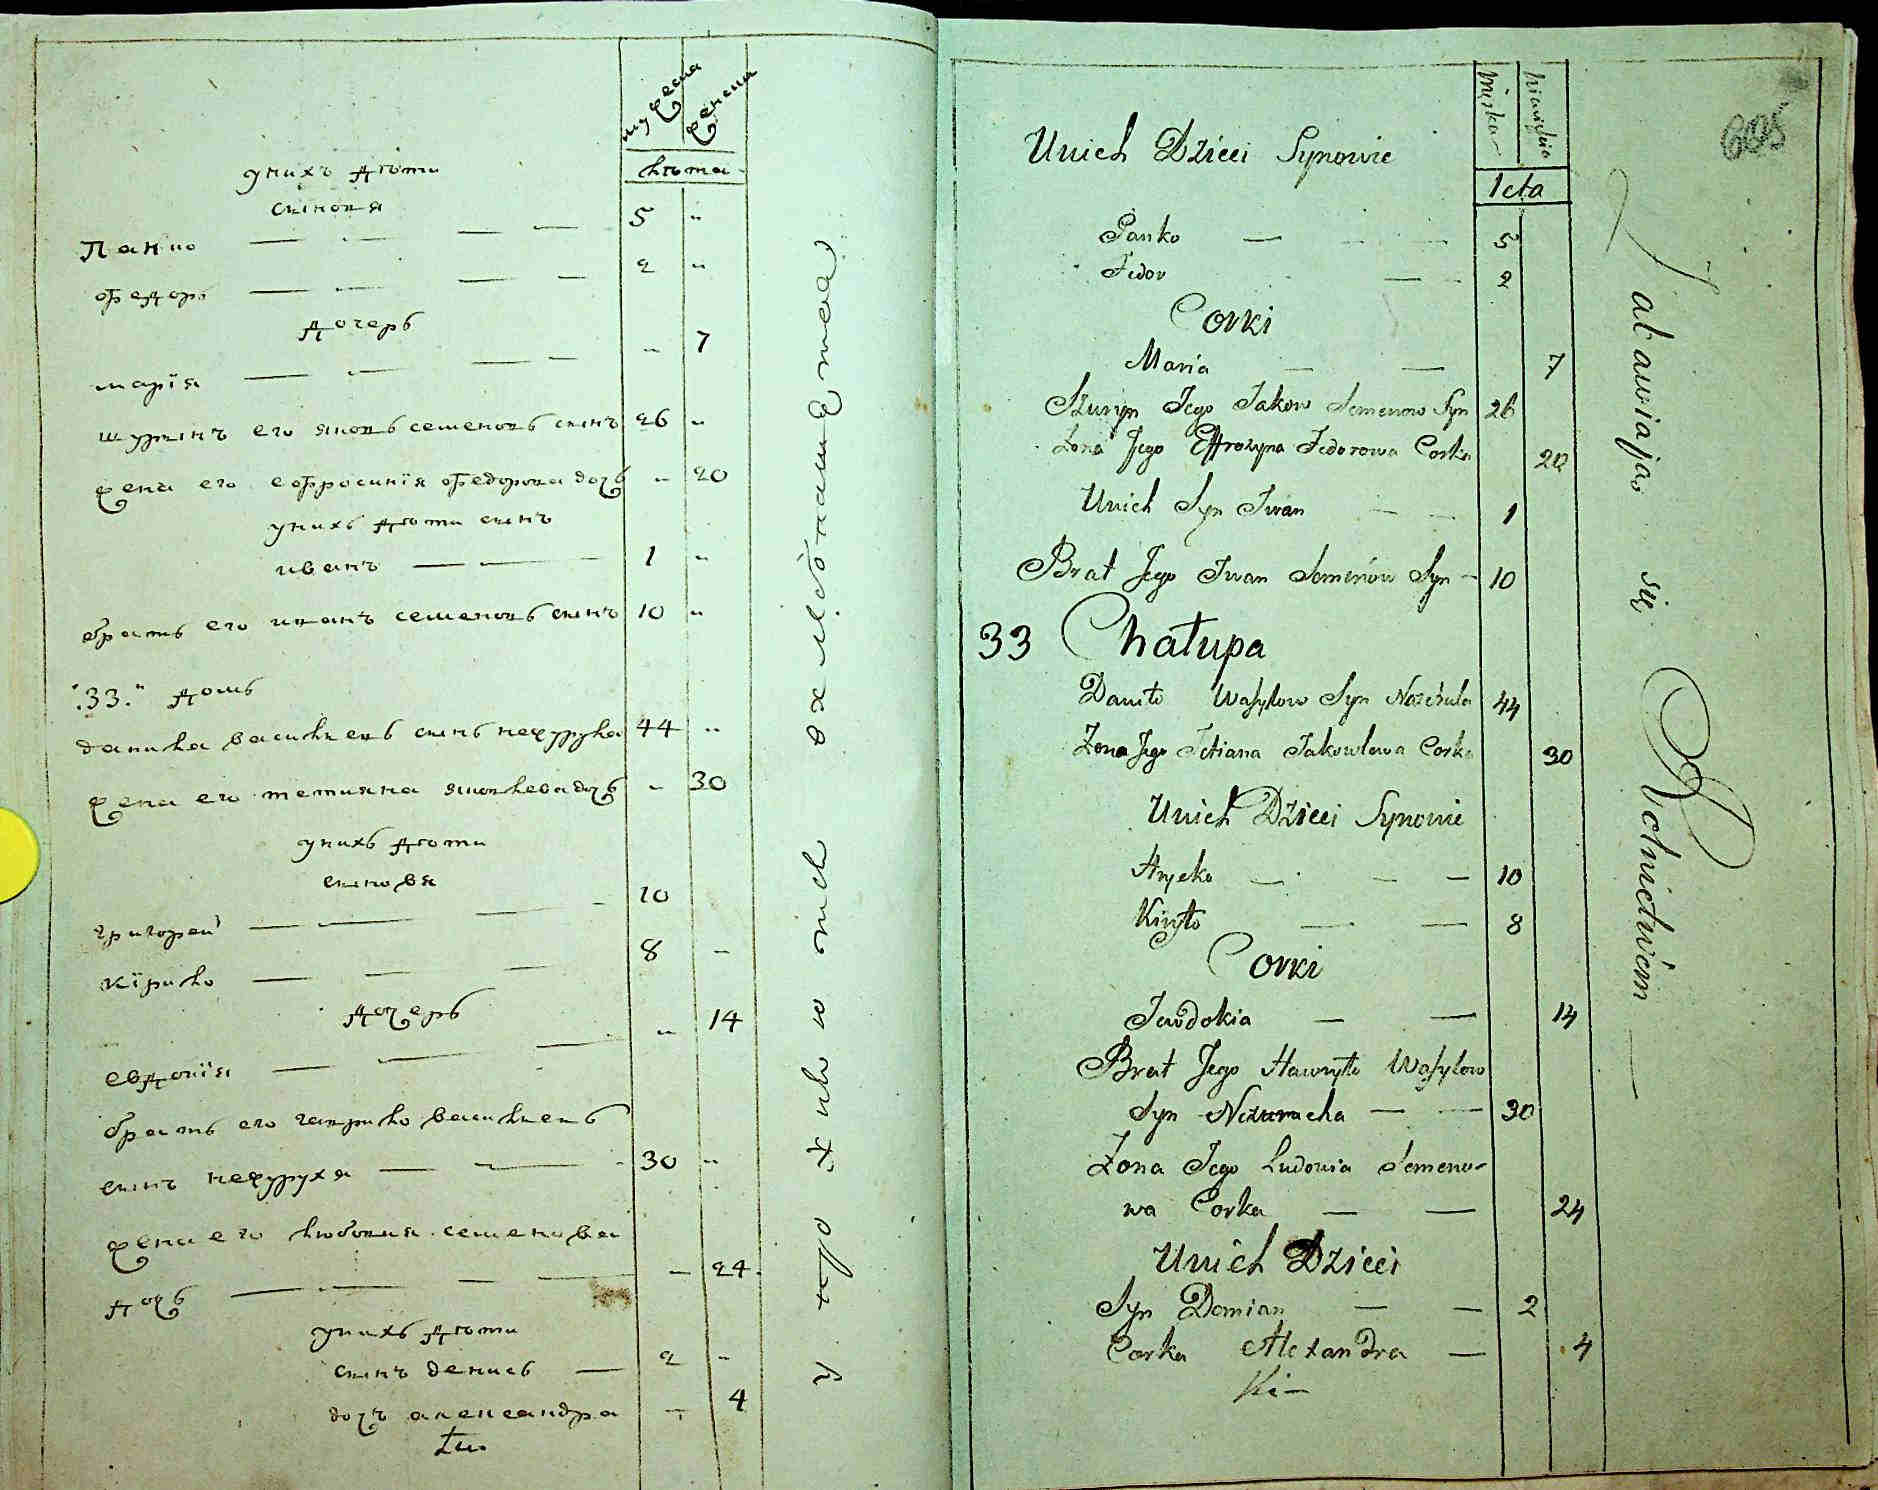 мужеска
женска
лѣта
унихъ дѣти
синовя
Панко — — 5 "
федоръ — — 2 "
дочерь
марїя — — " 7
шуринъ его яковъ семеновъ синъ 26 "
жена его ефросинїя федорова дочь " 20
унихъ дѣти синъ
иванъ — — 1 "
братъ его иванъ семеновъ синъ 10 "
"33." домъ
данила василиевъ синъ нежуруха 44 "
жена его тетияна яковлева дочь " 30
унихъ дѣти
синовья
григорей — — 10
кїрило — — 8 –
дочерь
евдокїя — — " 14
братъ его гаврило василиевъ
синъ нежурухя — — 30 "
жена его любовия семенова
дочь — — — 24
унихъ дѣти
синъ денись — 2 –
дочь александра – 4
męska
1cta
Unich Dzieci Synowie
Panko — — 5
Fedor — 2
Corki
Maria — — 7
Szuryn Jego Jakow Semenow Syn 26
Zona Jego Effrozyna Fedorowa Corka 20
Unich Syn Iwan — — 1
Brat Jego Iwan Semenow Syn – 10
33 Chałupa
Daniło Wasylow Syn 44
Zona Jego Tetiana Jakowlewa Corka 30
Unich Dzieci Synowie
Hrycko — — — 10
Kiryło — — 8
Corki
Jewdokia — — 14
Brat Jego Hawryło Wasylow
Syn — — 30
Zona Jego Ludowia Semeno-
wa Corka — — 24
Unich Dzieci
Syn Demian — — 2
Corka Alexandra — 4
Ki–
się
605